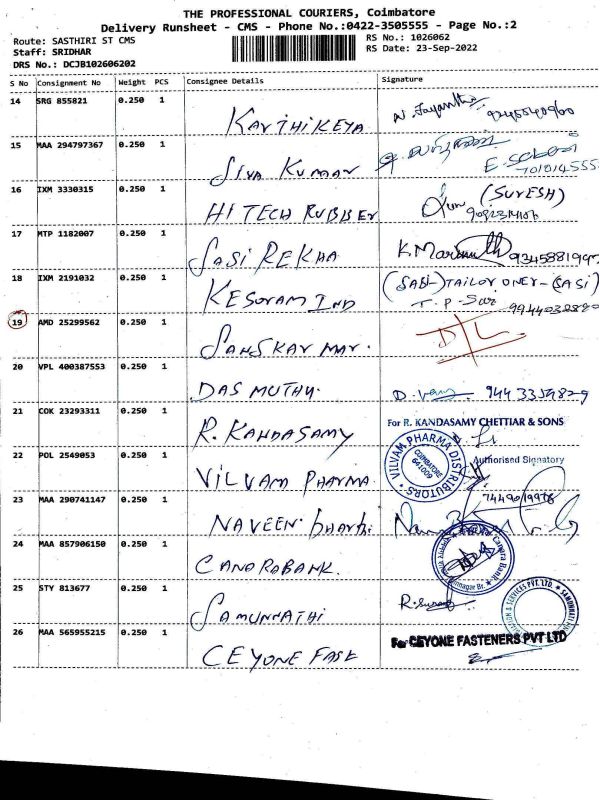 THE PROFESSIONAL COURIERS, Coimbatore
Delivery Runsheet - CMS - Phone No.:0422-3505555 - Page No.:2
Route: SASTHIRI ST CMS
Staff: SRIDHAR
DRS No.: DCJB102606202
RS No.: 1026062
RS Date: 23-Sep-2022
S No Consignment No Weight PCS Consignee Details Signature
14 SRG 855821 0.250 1 KARTHIKEYA N. Jayantha 9245540900
15 MAA 294797367 0.250 1 SIVA KUMAR
16 IXM 3330315 0.250 1 HITECH RUBBER (SURESH)
17 MTP 1182007 0.250 1 SASI REKHA
18 IXM 2191032 0.250 1 KESORAM IND
19 AMD 25299562 0.250 1 SANSKAR MAR. D/L
20 VPL 400387553 0.250 1 DAS MUTHU.
21 COK 23293311 0.250 1 R. KANDASAMY For R. KANDASAMY CHETTIAR & SONS
Authorised Signatory
22 POL 2549053 0.250 1 VILVAM PHARMA VILVAM PHARMA DISTRIBUTORS COIMBATORE 641009
23 MAA 290741147 0.250 1 NAVEEN bharthi
24 MAA 857906150 0.250 1 CANARABANK. Canara Bank
25 STY 813677 0.250 1 SAMUNNATHI & SERVICES PVT. LTD.
26 MAA 565955215 0.250 1 CEYONE FASE For CEYONE FASTENERS PVT LTD